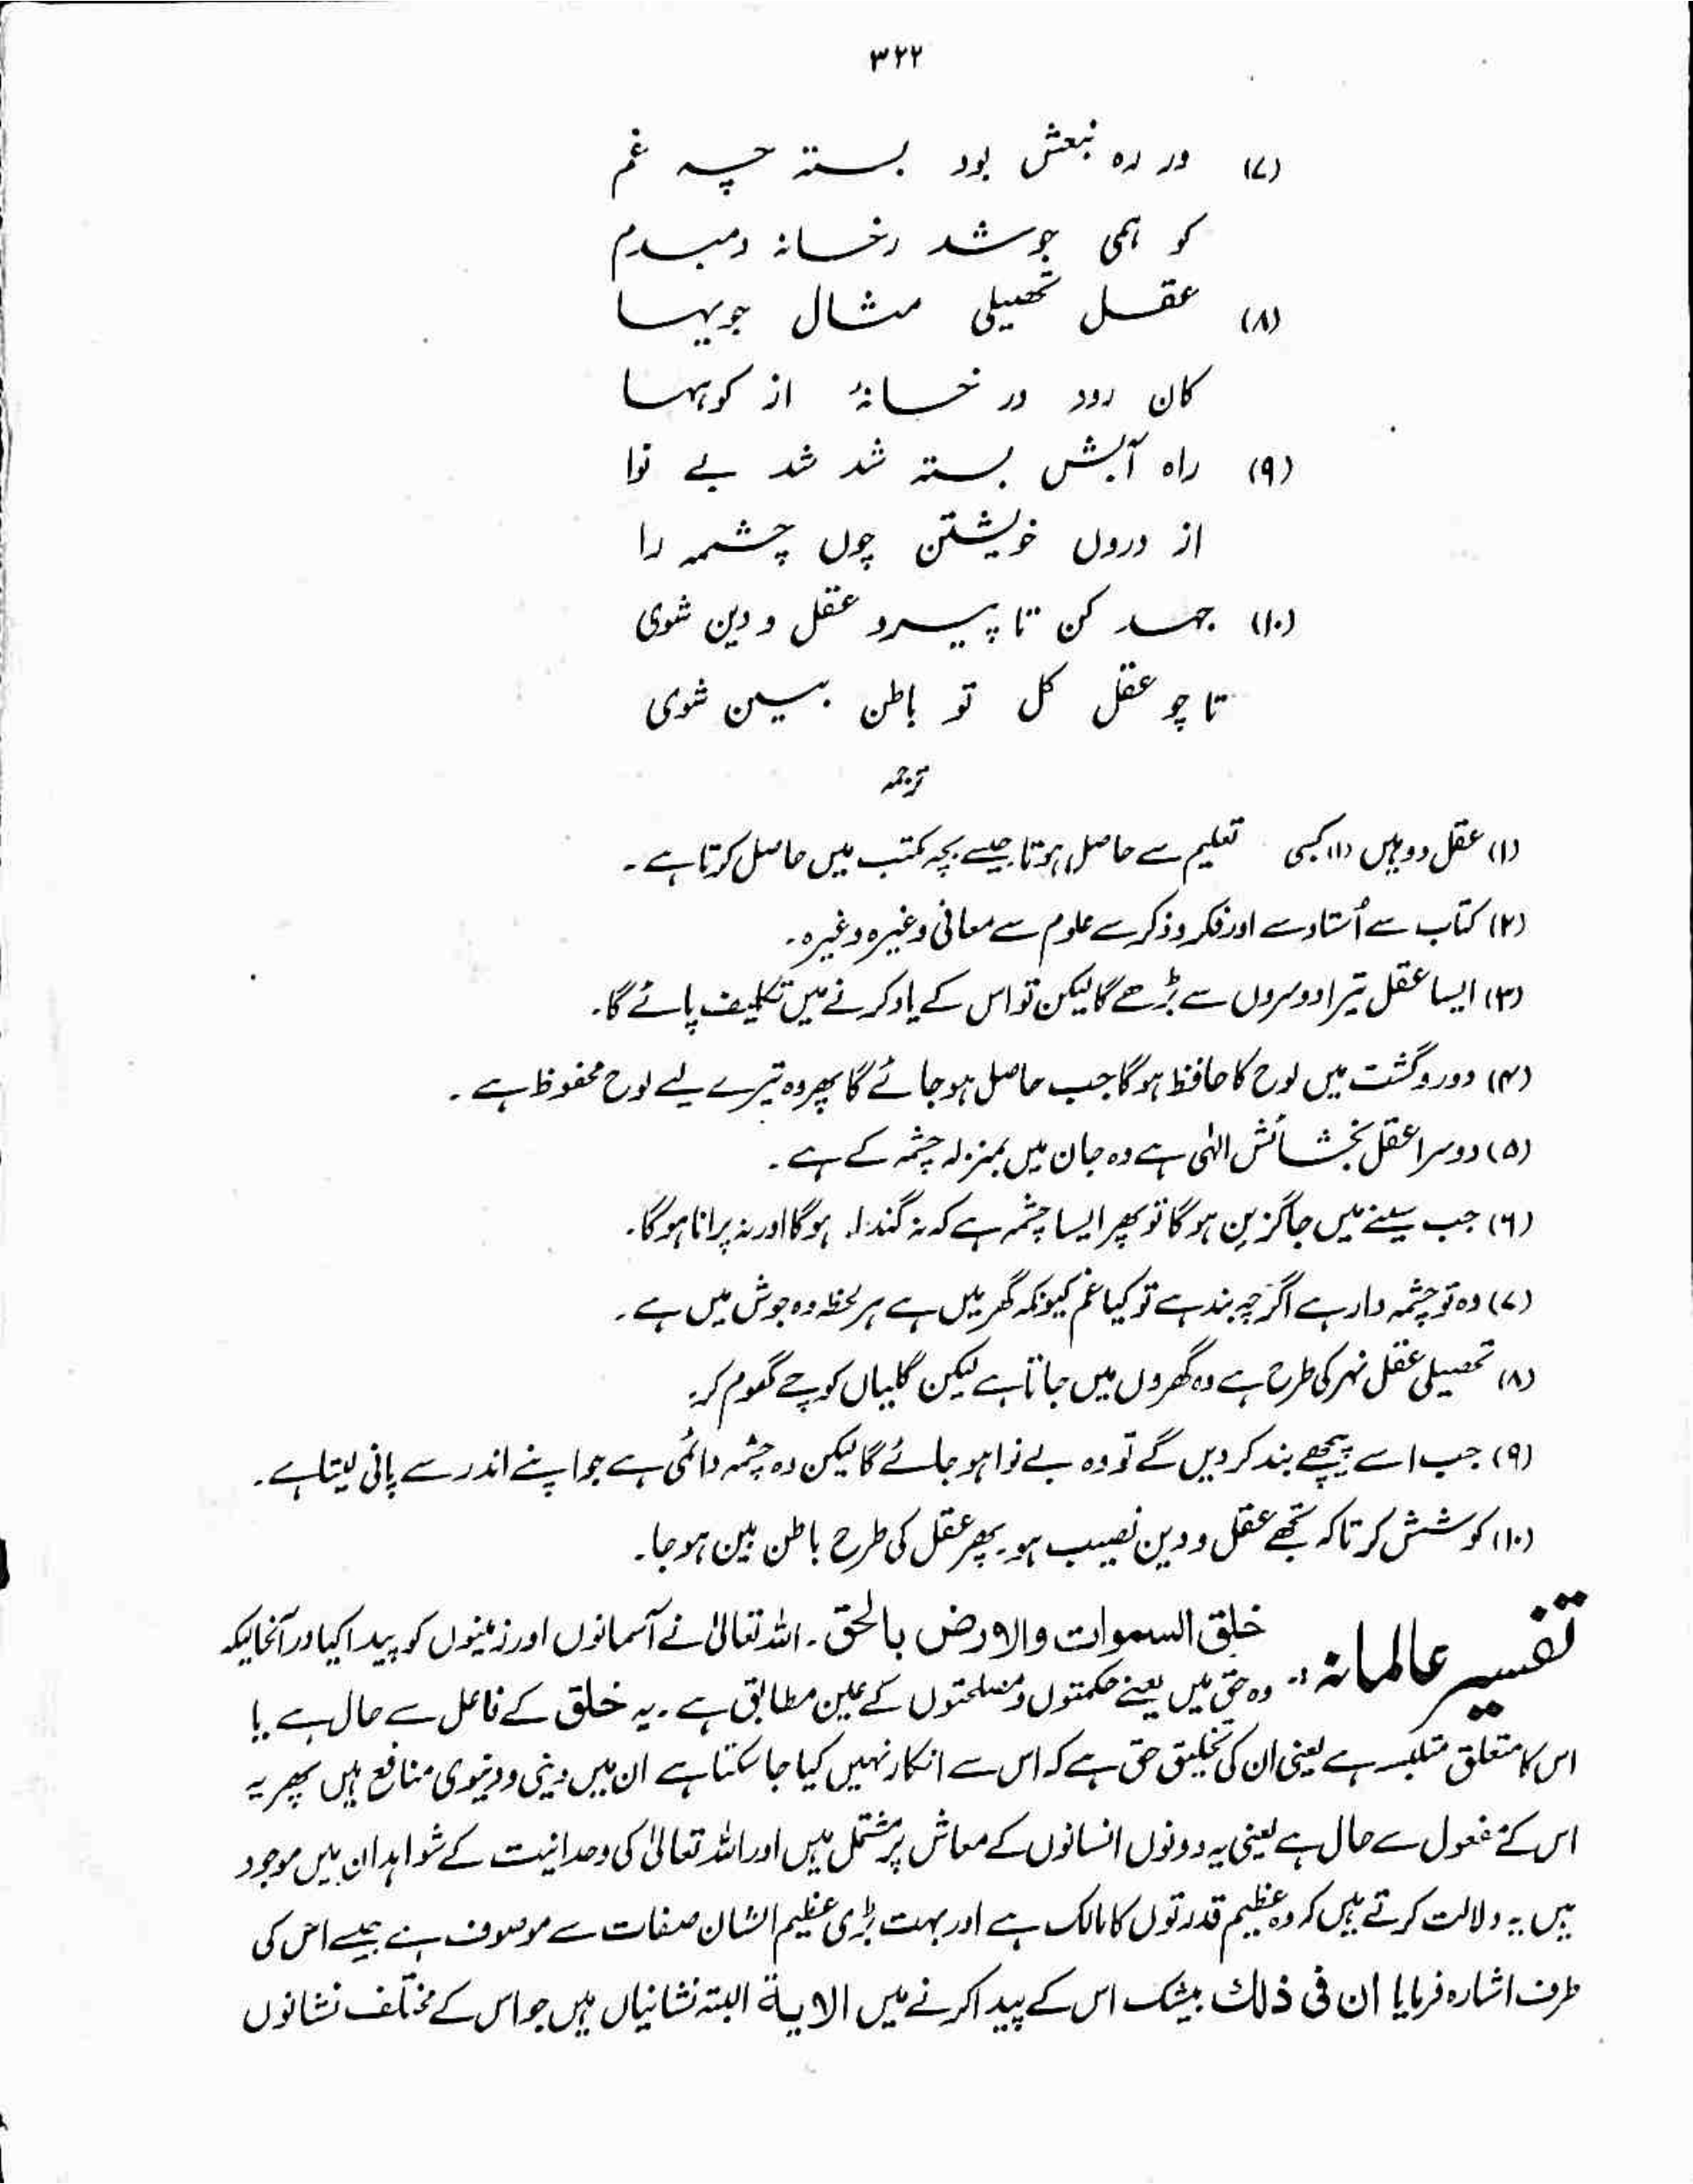 ۳۲۲
(۷) ور رہ نبعش بود بستہ چہ غم
کو ہمی جوشد زخانہ دمبدم
(۸) عقل تحصیلی مثال جویہا
کان رود در خانۂ از کوہہا
(۹) راہ آبش بستہ شد شد بے نوا
از دروں خویشتن چوں چشمہ را
(۱۰) جہد کن تا پیرو عقل و دین شوی
تا چو عقل کل تو باطن بین شوی
ترجمہ
(۱) عقل دو ہیں (۱) کسبی تعلیم سے حاصل ہوتا جیسے بچہ مکتب میں حاصل کرتا ہے۔
(۲) کتاب سے اُستاد سے اور فکر و ذکر سے علوم سے معانی وغیرہ وغیرہ۔
(۳) ایسا عقل تیرا دوسروں سے بڑھے گا لیکن تو اس کے یاد کرنے میں تکلیف پائے گا۔
(۴) دور و گشت میں لوح کا حافظ ہوگا جب حاصل ہو جائے گا پھر وہ تیرے لیے لوح محفوظ ہے۔
(۵) دوسرا عقل بخشائش الٰہی ہے وہ جان میں بمنزلہ چشمہ کے ہے۔
(۶) جب سینے میں جاگزین ہوگا تو پھر ایسا چشمہ ہے کہ نہ گندا ہوگا اور نہ پرانا ہوگا۔
(۷) وہ تو چشمہ دار ہے اگرچہ بند ہے تو کیا غم کیونکہ گھر میں ہے ہر لحظہ وہ جوش میں ہے۔
(۸) تحصیلی عقل نہر کی طرح ہے وہ گھروں میں جاتا ہے لیکن گلیاں کوچے گھوم کر۔
(۹) جب اسے پیچھے بند کر دیں گے تو وہ بے نوا ہو جائے گا لیکن وہ چشمہ دائمی ہے جو اپنے اندر سے پانی لیتا ہے۔
(۱۰) کوشش کر تاکہ تجھے عقل و دین نصیب ہو پھر عقل کی طرح باطن بین ہو جا۔
تفسیر عالمانہ: خلق السموات والارض بالحق۔ اللہ تعالیٰ نے آسمانوں اور زمینوں کو پیدا کیا در آنحالیکہ
وہ حق میں یعنے حکمتوں و مصلحتوں کے عین مطابق ہے۔ یہ خلق کے فاعل سے حال ہے یا
اس کا متعلق متلبسہ ہے یعنی ان کی تخلیق حق ہے کہ اس سے انکار نہیں کیا جا سکتا ہے ان میں دینی و دنیوی منافع ہیں پھر یہ
اس کے مفعول سے حال ہے یعنی یہ دونوں انسانوں کے معاش پر مشتمل ہیں اور اللہ تعالیٰ کی وحدانیت کے شواہد ان میں موجود
ہیں یہ دلالت کرتے ہیں کہ وہ عظیم قدرتوں کا مالک ہے اور بہت بڑی عظیم الشان صفات سے موصوف ہے جیسے اس کی
طرف اشارہ فرمایا ان فی ذلك بیشک اس کے پیدا کرنے میں الایة البتہ نشانیاں ہیں جو اس کے مختلف نشانوں